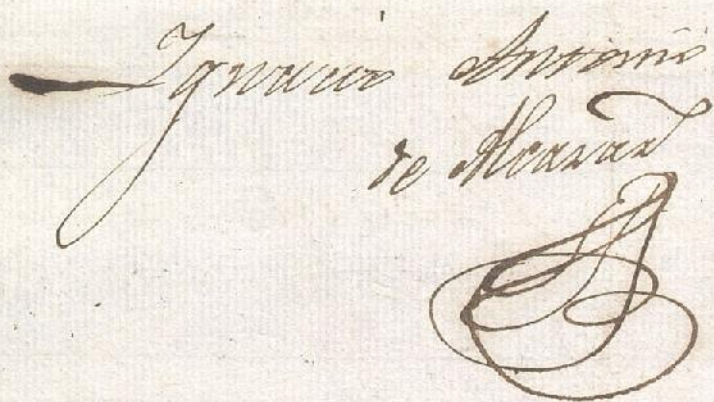 Ignacio Antonio
de Alcaraz